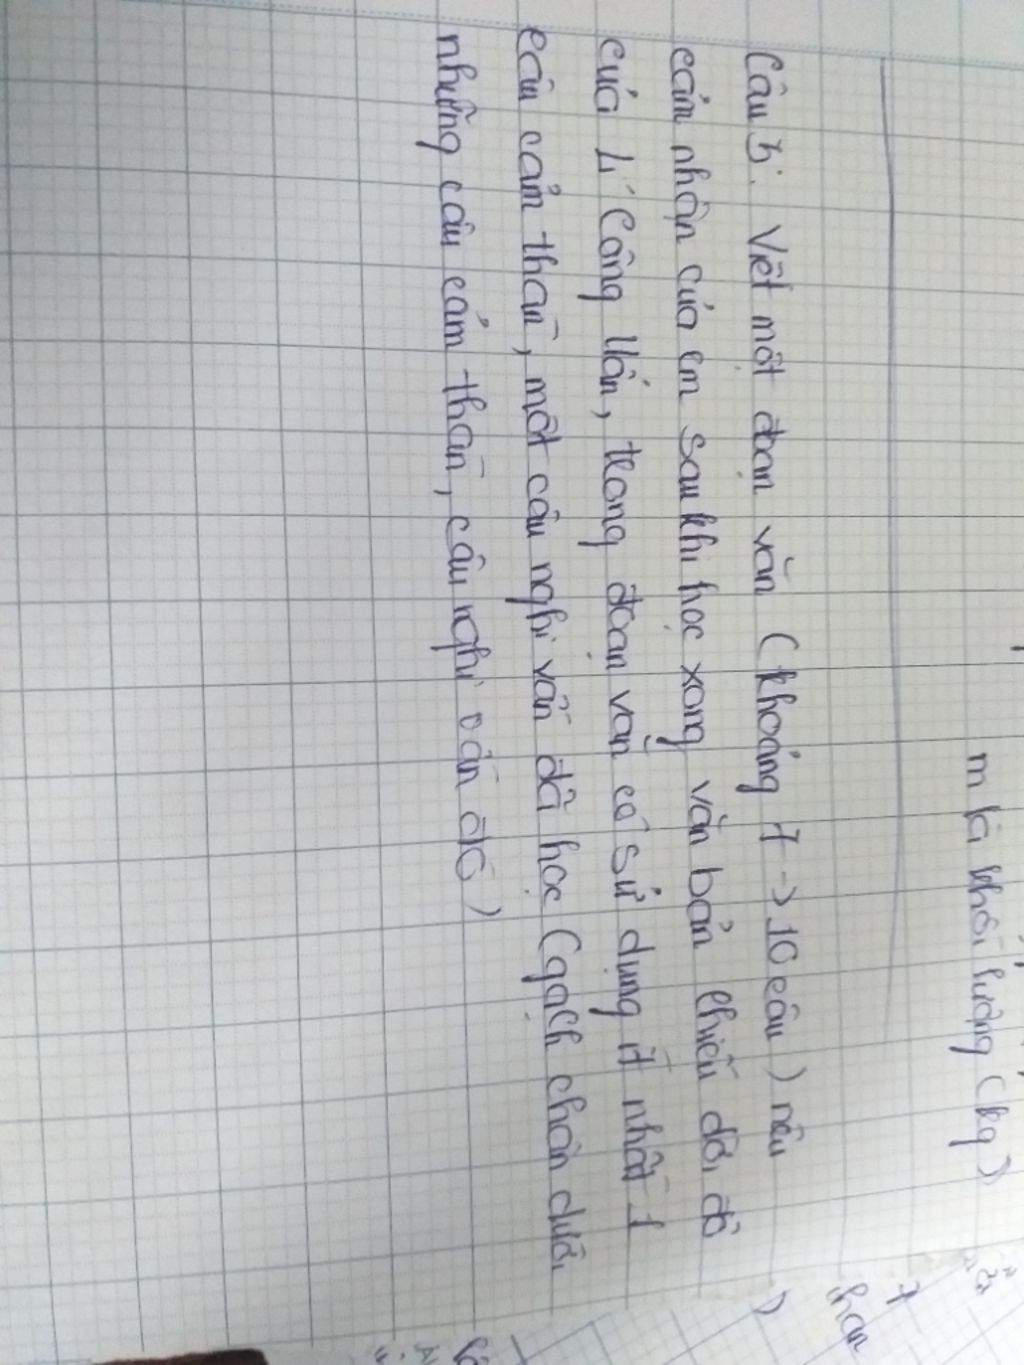 m là khối lượng (kg)
Câu 3: Viết một đoạn văn (khoảng 7 → 10 câu) nêu
cảm nhận của em sau khi học xong văn bản chiếu dời đô
của Lí Công Uẩn, trong đoạn văn có sử dụng ít nhất 1
câu cảm thán, một câu nghi vấn đã học (gạch chân dưới
những câu cảm thán, câu nghi vấn đó)